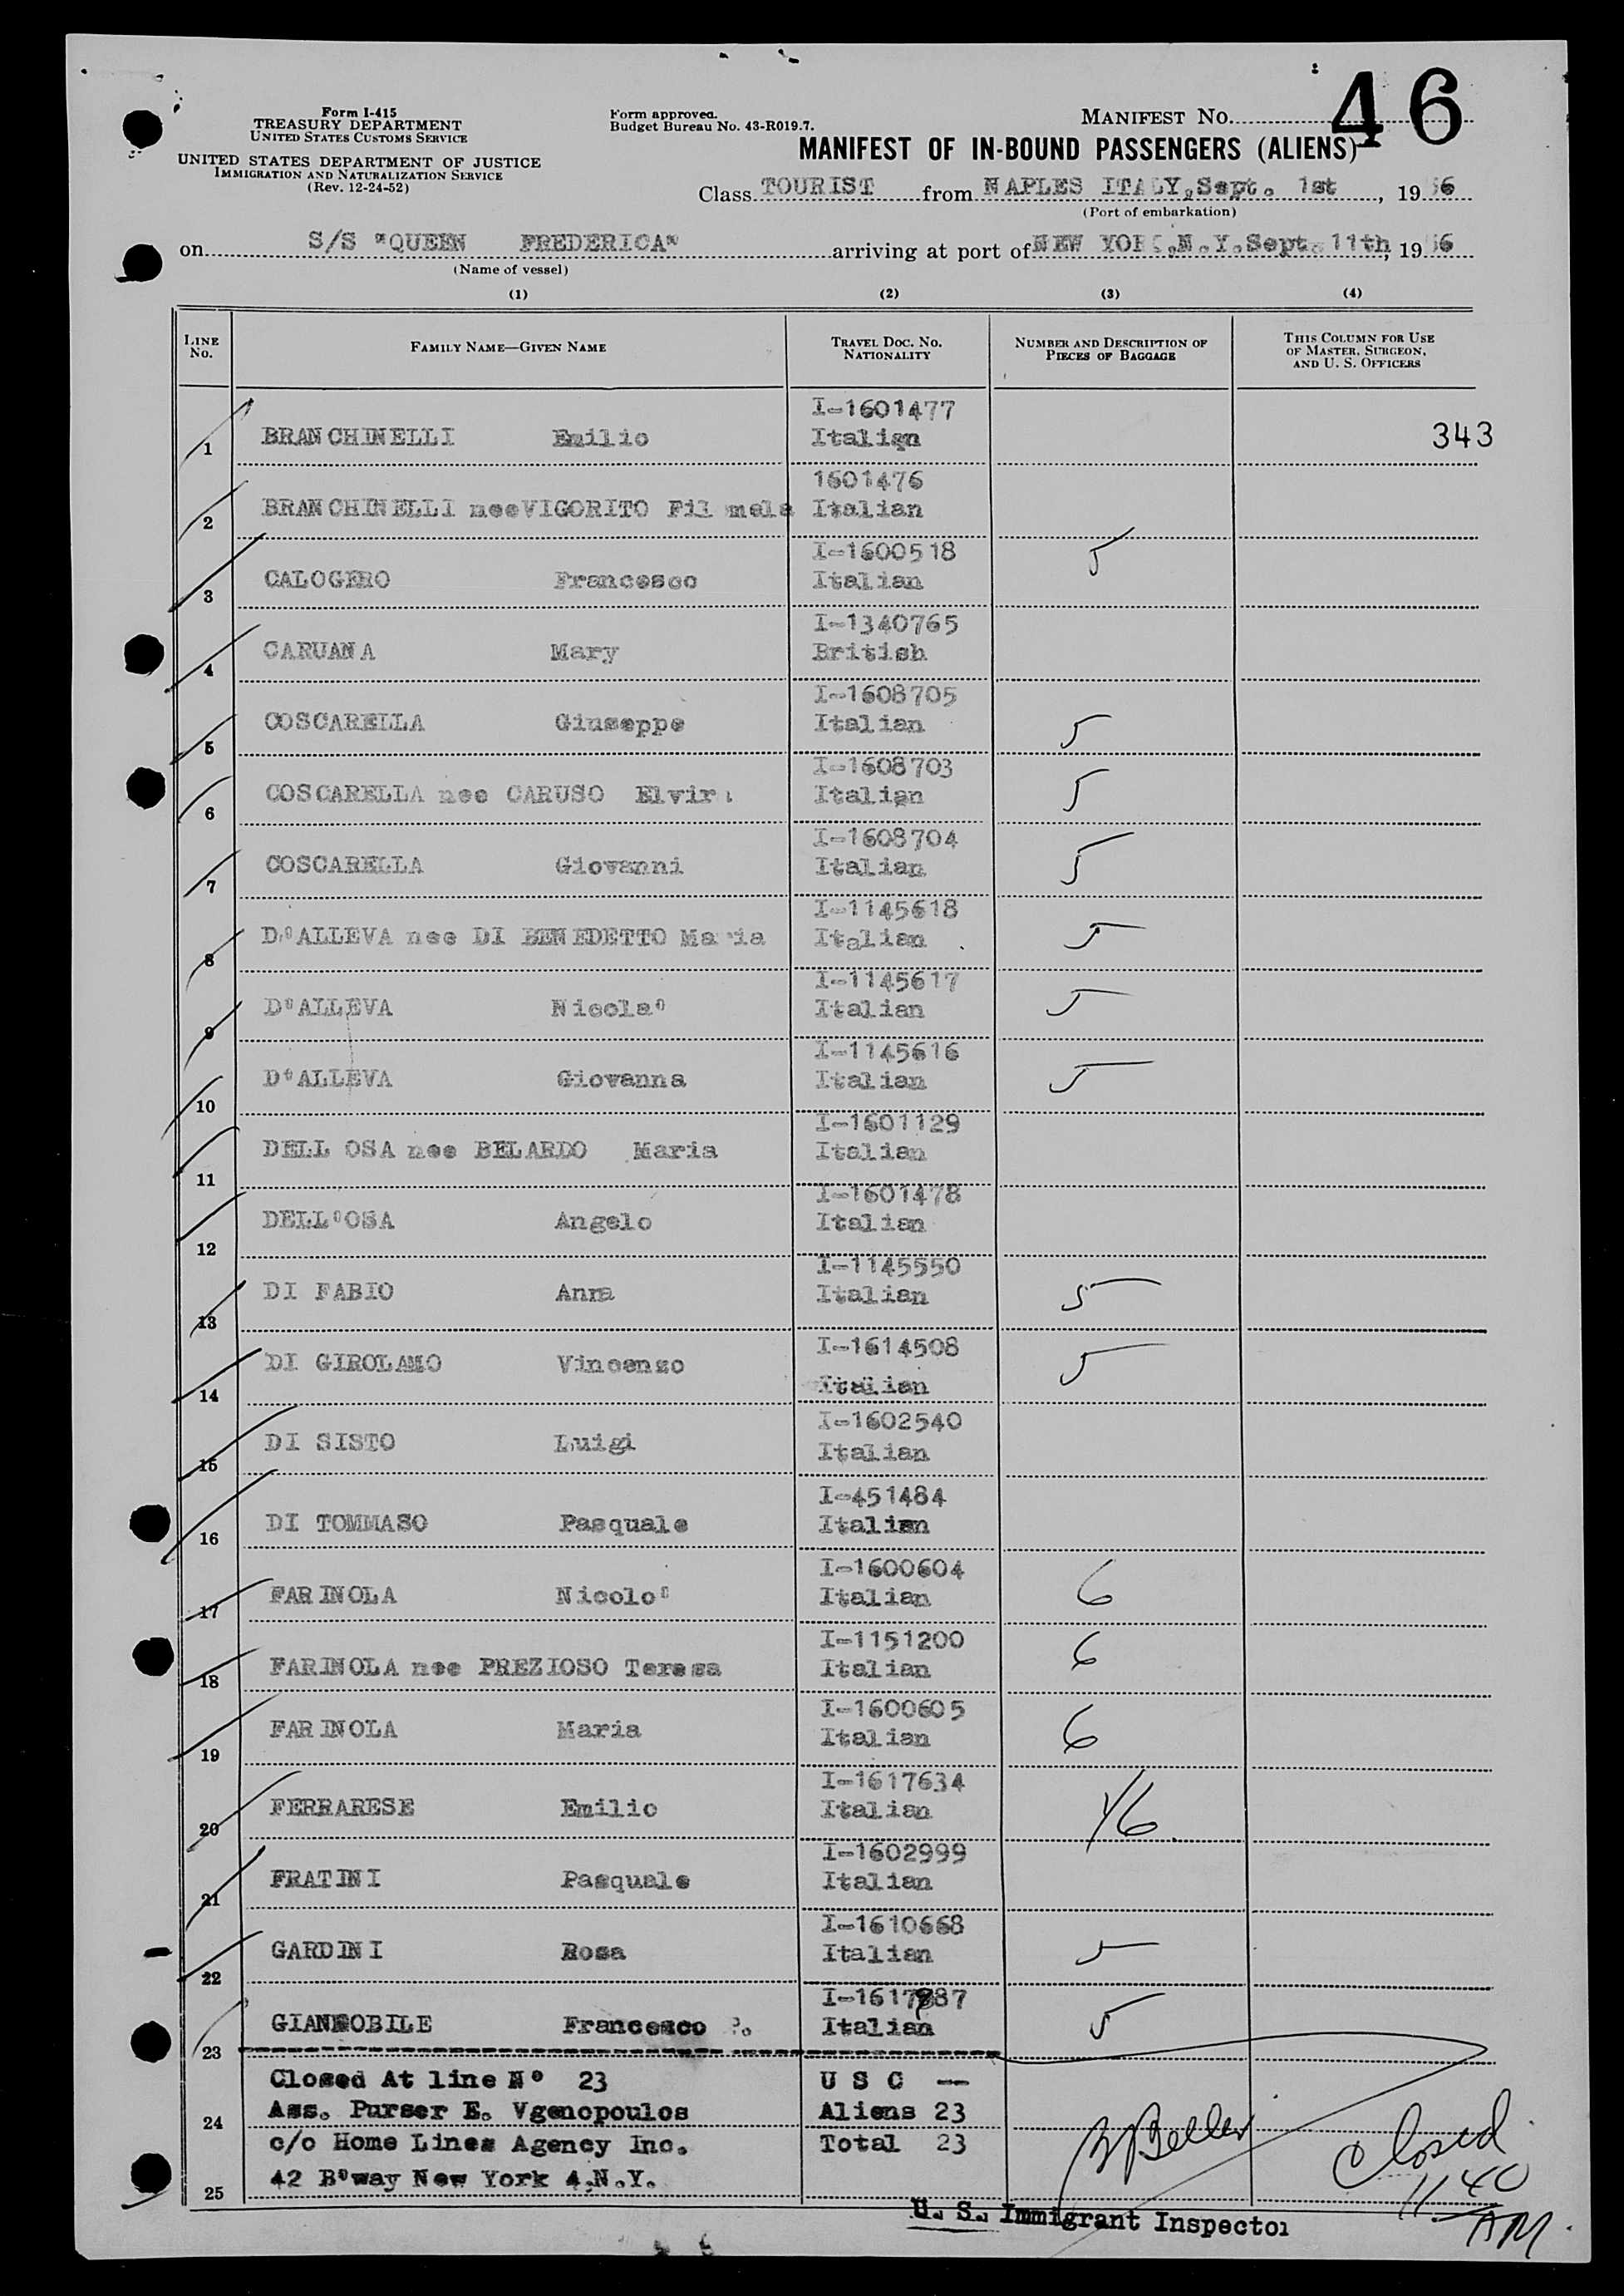 46
Form I-415
TREASURY DEPARTMENT
UNITED STATES CUSTOMS SERVICE
UNITED STATES DEPARTMENT OF JUSTICE
IMMIGRATION AND NATURALIZATION SERVICE
(Rev. 12-24-52)
Form approved.
Budget Bureau No. 43-R019.7.
MANIFEST No.
MANIFEST OF IN-BOUND PASSENGERS (ALIENS)
Class TOURIST from NAPLES ITALY, Sept. 1st, 1956
(Port of embarkation)
on S/S "QUEEN FREDERICA" arriving at port of NEW YORK, N.Y. Sept. 11th, 1956
(Name of vessel)
(1) (2) (3) (4)
LINE No. FAMILY NAME—GIVEN NAME TRAVEL DOC. NO. NATIONALITY NUMBER AND DESCRIPTION OF PIECES OF BAGGAGE THIS COLUMN FOR USE OF MASTER, SURGEON, AND U. S. OFFICERS
I-1601477
1 BRANCHINELLI Emilio Italian 343
1601476
2 BRANCHINELLI nee VIGORITO Fil mela Italian
I-1600518
3 CALOGERO Francesco Italian 5
I-1340765
4 CARUANA Mary British
I-1608705
5 COSCARELLA Giuseppe Italian 5
I-1608703
6 COSCARELLA nee CARUSO Elvira Italian 5
I-1608704
7 COSCARELLA Giovanni Italian 5
I-1145618
8 D'ALLEVA nee DI BENEDETTO Maria Italian 5
I-1145617
9 D'ALLEVA Nicola' Italian 5
I-1145616
10 D'ALLEVA Giovanna Italian 5
I-1601129
11 DELL OSA nee BELARDO Maria Italian
I-1601478
12 DELL'OSA Angelo Italian
I-1145550
13 DI FABIO Anna Italian 5
I-1614508
14 DI GIROLAMO Vincenzo Italian 5
I-1602540
15 DI SISTO Luigi Italian
I-451484
16 DI TOMMASO Pasquale Italian
I-1600604
17 FARINOLA Nicolo' Italian 6
I-1151200
18 FARINOLA nee PREZIOSO Teresa Italian 6
I-1600605
19 FARINOLA Maria Italian 6
I-1617634
20 FERRARESE Emilio Italian
I-1602999
21 FRATINI Pasquale Italian
I-1610668
22 GARDINI Rosa Italian 5
23 GIANNOBILE Francesco P. Italian 5
Closed At line Nº 23 U S C --
24 Ass. Purser E. Vgenopoulos Aliens 23
c/o Home Lines Agency Inc. Total 23
25 42 B'way New York 4.N.Y.
Closed
11 40
AM
U. S. Immigrant Inspector